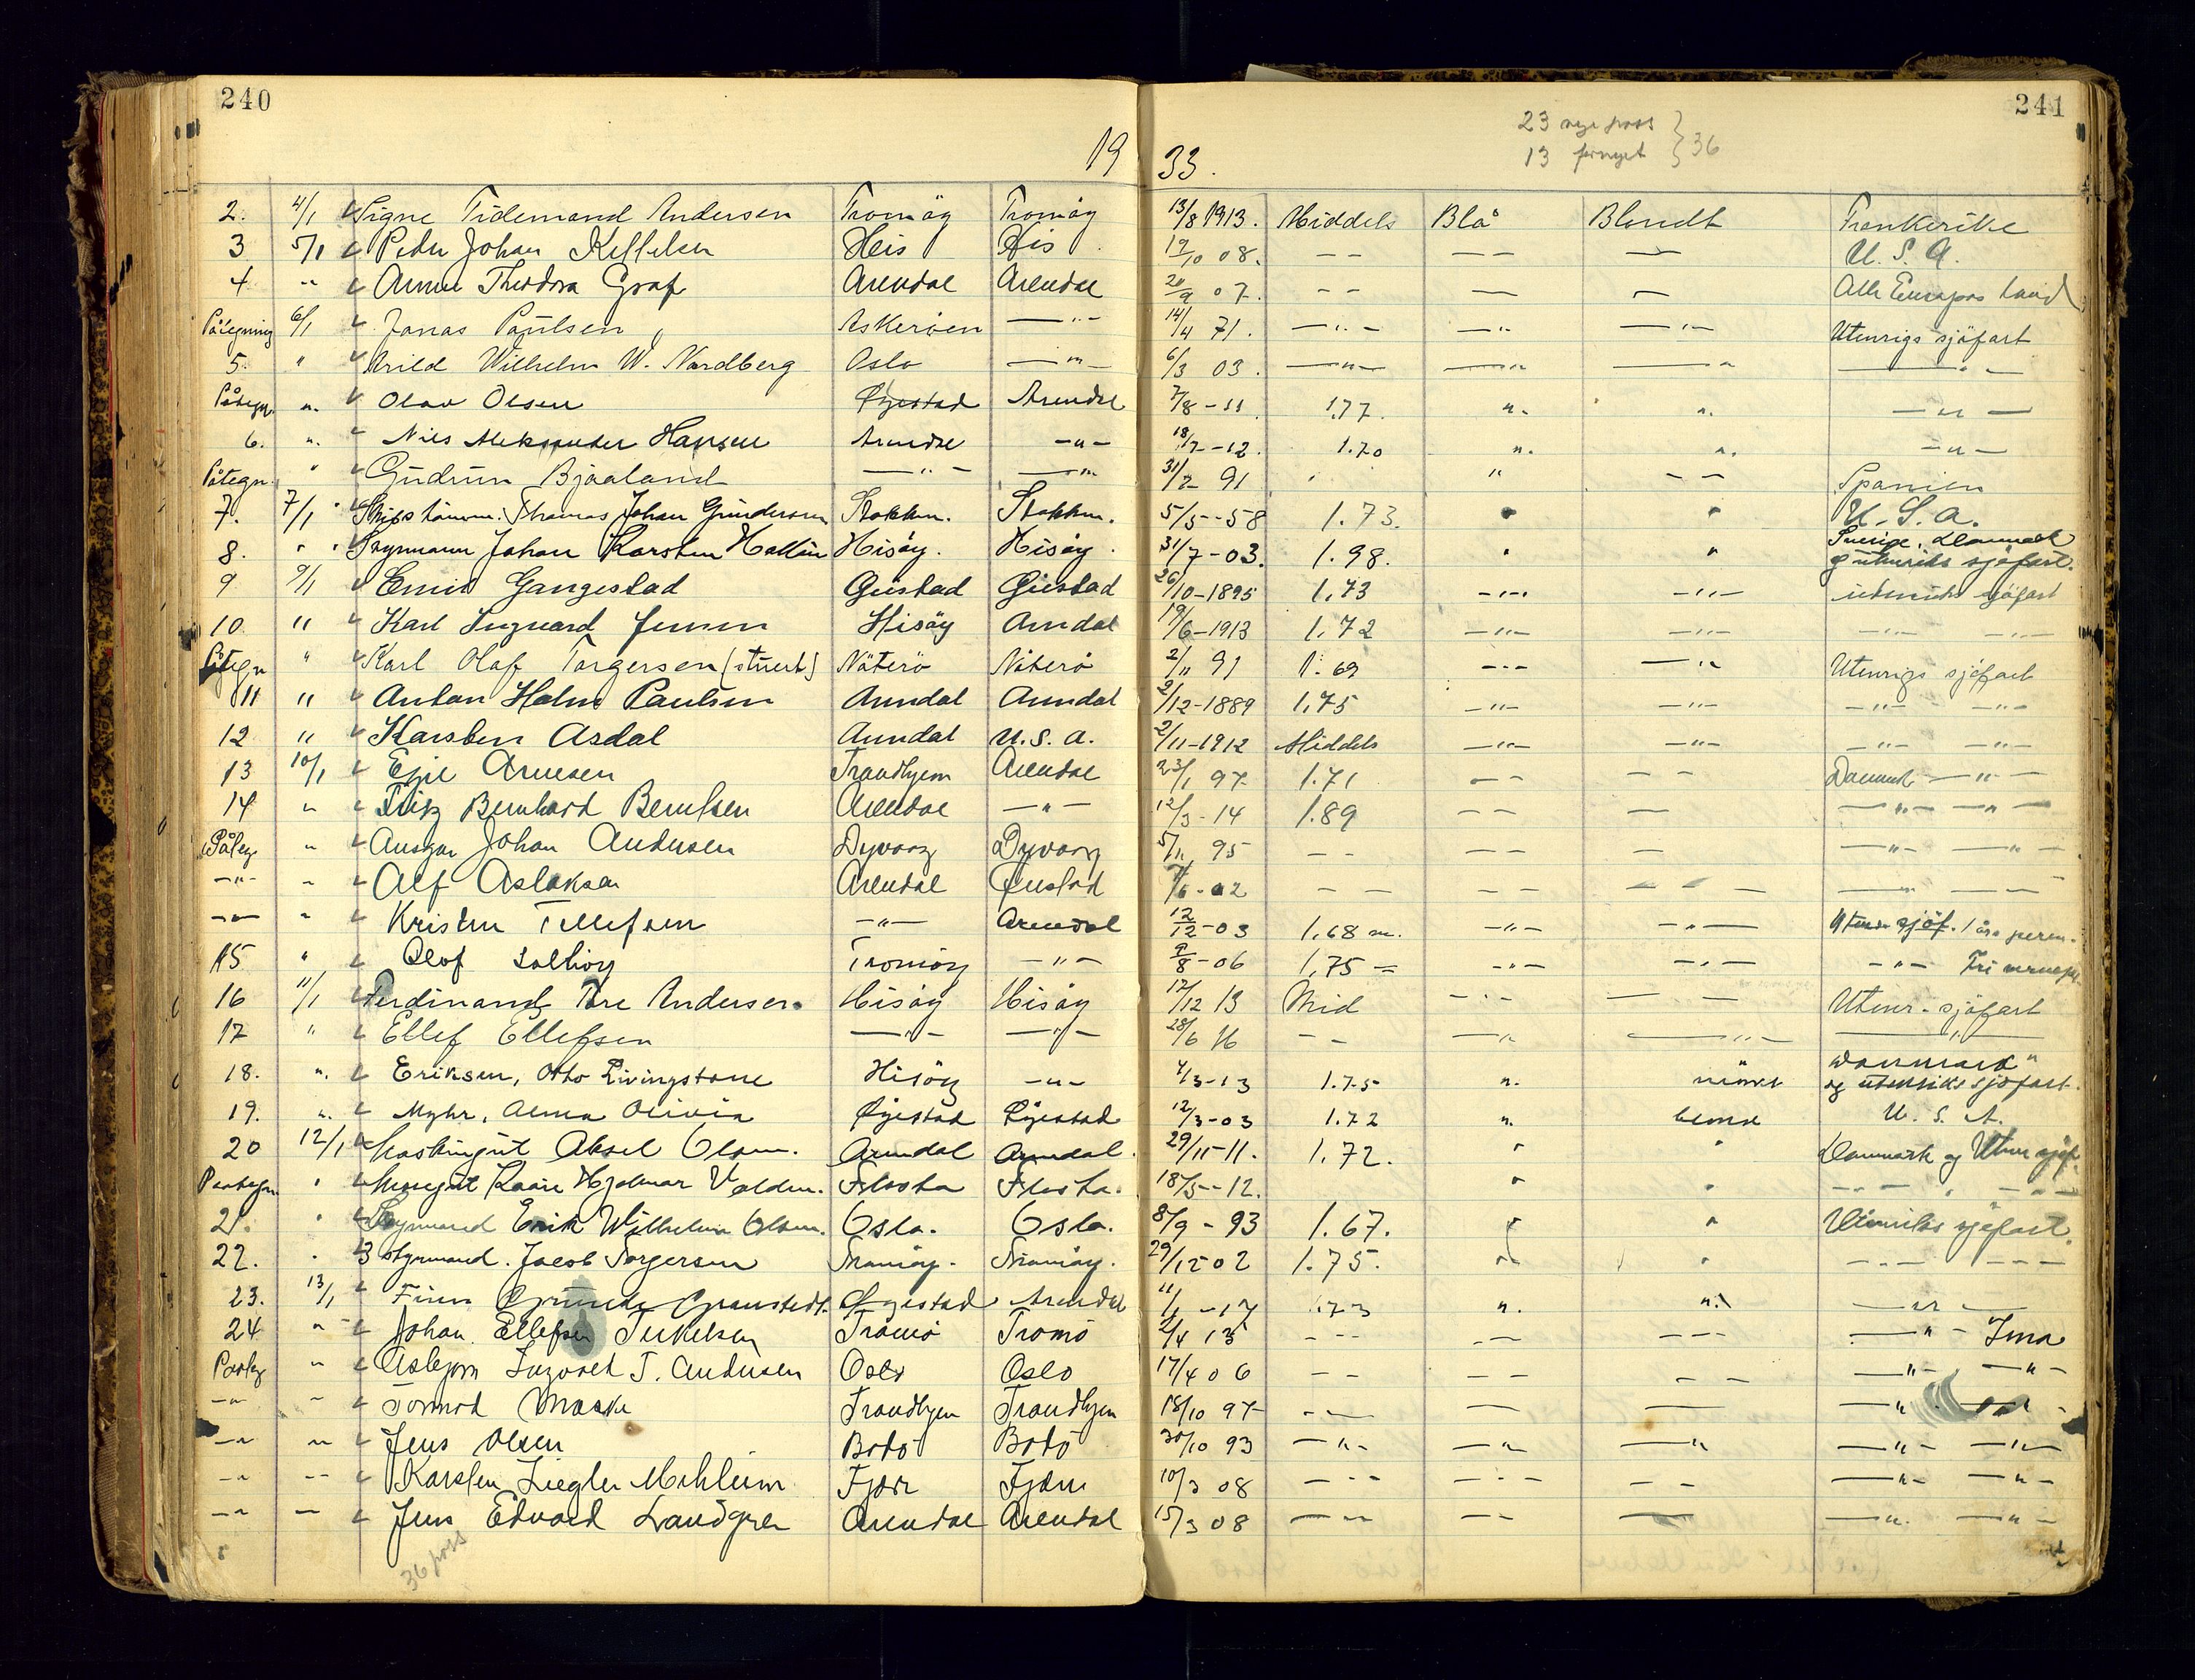 240
241
19 33.
23 nye pass
13 fornyet } 36
2. 4/1 Signe Tidemand Andersen Tromöy Tromöy 13/8 1913. Middels Blå Blondt Frankerike
3 5/1 Peder Johan Kellelsen Heis His 19/10 08. -- -- — U. S. A.
4 " Anna Theodora Graf Arendal Arendal 20/9 07. -- — — Alle Europas land
Påtegning 6/1 Janas Paulsen Askeröen —"- 14/4 71. —"- —" —"- Utenrigs sjöfart
5. " Arild Wilhelm W. Nordberg Oslo —"- 6/3 03. —"— —" —" —"-
Påtegn. ". Olav Olsen Øyestad Arendal 7/8-11 1.77. ". ". —"—
6. ". Nils Aleksander Hansen Arendal -"- 18/7-12. 1.70 ". ". -"-
Påtegn. " Gudrun Bjaaland —"- —" 31/2 91 " " -- Spanien
7. 7/1 Skibstömm. Thomas Johan Gundersen Stokken. Stokken. 5/5-58 1.73. " " U.S.A.
8. " Styrmann Johan Karsten Hallin Hisöy. Hisöy. 31/7-03. 1.98. " " Sverige, Danmark og utenriks sjöfart.
9 9/1 Emil Gangestad Giestad Giestad 26/10-1895 1,73 -"- -"- utenriks sjöfart
10 " Karl Ingvard Jensen Hisöy Arndal 19/6-1913 1,72 -"- -"- -"- -"-
Påtegn " Karl Olaf Torgersen (stuert) Nöterö Nöterö 2/11 91 1.69 -"- —" Utenrigs sjöfart
11 " Anton Holm Paulsen Arendal Arendal 2/12-1889 1,75 -"- -"- -"- -"-
12 " Karsten Asdal Arendal U.S.A. 2/11-1912 Middels -"- -"- -"- -"-
13 10/1 Egil Arnesen Trondhjem Arendal 23/1 97 1.71 -- -- Danmark —"-
14 " Fritz Bernhard Berntsen Arendal —"- 12/3-14 1.89 -- — —"- —"-
Påteg " Ansgar Johan Andersen Dyvaag Dyvaag 5/11 95 -- -- — —"- —"-
-"- " Alf Aslaksen Arendal 7/6-02 -- -- -- —"- —
-"- " Kristen Tellefsen -"- Arendal 12/12-03 1,68 m. -"- -"- Utenr. sjöf. 1 års
15 " Olof Solhöy Tromöy -"- 9/8-06 1,75 = -"- -"- -"-
16 11/1 Ferdinand Tore Andersen Hisöy Hisöy 17/12 13 Mid -"- — — Utenr. sjöfart
17 " Ellef Ellefsen —"- —"- 28/6 16 -- —" —"- —"—
18. ". Eriksen, Otto Livingstone Hisöy -"- 4/3-13 1.75 ". mörkt Danmark og utenriks sjöfart.
19. ". Myhr, Alma Olivia Øyestad Øyestad 12/3-03 1.72 ". blond U. S. A.
20 12/1 Maskingut Aksel Olsen. Arendal Arendal. 29/11-11. 1.72. " " Danmark og Utenr sjöf.
Paategn. " Messegut Kaare Hjalmar Flosta Flosta. 18/5-12. " " -"- -"-
21. " Styrmand Erik Wilhelm Olsen. Oslo. Oslo. 8/9-93 1.67. " " Utenriks sjöfart.
22. " 3 styrmand. Jacob Torgersen Tromöy. Tromöy. 29/12 02 1.75. " " --- ---
23. 13/1 Finn Granstedt. Øyestad Arendal 11/1-17 1.73 ". ". —"—
24 " Johan Ellefsen Terkelsen Tromö Tromö 2/4 13 --- -- --- —"-
Paateg " Asbjörn Ingvald T. Andersen Oslo Oslo 17/4 06 -- -- -- —"- —"-
-"- " Tormod Maske Trondhjem Trondhjem 18/10 97 -- — — —"
-"- " Jens Olsen Bodö Bodö 30/10 93 —"- —" —" —"- —"
-"- -- Karsten Ziegler Mehlum Fjære Fjære 10/3 08 --- --- -- —"- —"-
-"- — Jens Edvard Landgren Arendal Arendal 15/3 08 —"- -- — —". —"-
36 pass